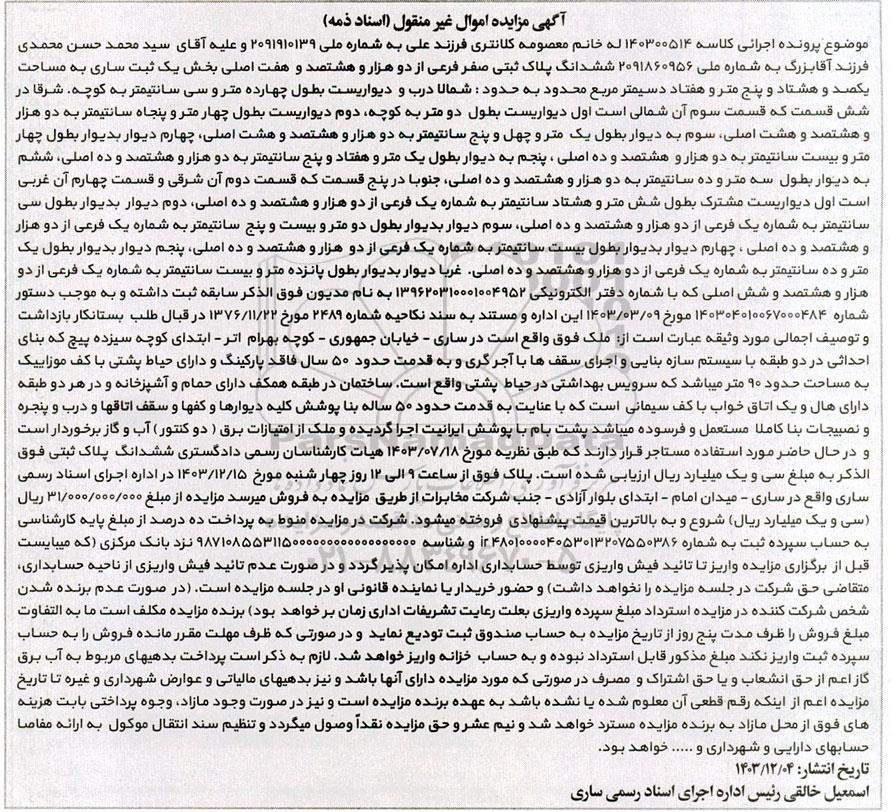 آگهی مزایده اموال غیر منقول (اسناد ذمه)
موضوع پرونده اجرائی کلاسه ۱۴۰۳۰۰۵۱۴ له خانم معصومه کلانتری فرزند علی به شماره ملی ۲۰۹۱۹۱۰۱۳۹ و علیه آقای سید محمد حسن محمدی
فرزند آقابزرگ به شماره ملی ۲۰۹۱۸۶۰۹۵۶ ششدانگ پلاک ثبتی صفر فرعی از دو هزار و هشتصد و هفت اصلی بخش یک ثبت ساری به مساحت
یکصد و هشتاد و پنج متر و هفتاد دسیمتر مربع محدود به حدود : شمالا درب و دیواریست بطول چهارده متر و سی سانتیمتر به کوچه. شرقا در
شش قسمت که قسمت سوم آن شمالی است اول دیواریست بطول دو متر به کوچه، دوم دیواریست بطول چهار متر و پنجاه سانتیمتر به دو هزار
و هشتصد و هشت اصلی، سوم به دیوار بطول یک متر و چهل و پنج سانتیمتر به دو هزار و هشتصد و هشت اصلی، چهارم دیوار بدیوار بطول چهار
متر و بیست سانتیمتر به دو هزار و هشتصد و ده اصلی ، پنجم به دیوار بطول یک متر و هفتاد و پنج سانتیمتر به دو هزار و هشتصد و ده اصلی، ششم
به دیوار بطول سه متر و ده سانتیمتر به دو هزار و هشتصد و ده اصلی، جنوبا در پنج قسمت که قسمت دوم آن شرقی و قسمت چهارم آن غربی
است اول دیواریست مشترک بطول شش متر و هشتاد سانتیمتر به شماره یک فرعی از دو هزار و هشتصد و ده اصلی، دوم دیوار بدیوار بطول سی
سانتیمتر به شماره یک فرعی از دو هزار و هشتصد و ده اصلی، سوم دیوار بدیوار بطول دو متر و بیست و پنج سانتیمتر به شماره یک فرعی از دو هزار
و هشتصد و ده اصلی ، چهارم دیوار بدیوار بطول بیست سانتیمتر به شماره یک فرعی از دو هزار و هشتصد و ده اصلی، پنجم دیوار بدیوار بطول یک
متر و ده سانتیمتر به شماره یک فرعی از دو هزار و هشتصد و ده اصلی. غربا دیوار بدیوار بطول پانزده متر و بیست سانتیمتر به شماره یک فرعی از دو
هزار و هشتصد و شش اصلی که با شماره دفتر الکترونیکی ۱۳۹۶۲۰۳۱۰۰۰۱۰۰۴۹۵۲ به نام مدیون فوق الذکر سابقه ثبت داشته و به موجب دستور
شماره ۱۴۰۳۰۴۰۱۰۰۶۷۰۰۰۴۸۴ مورخ ۱۴۰۳/۰۳/۰۹ این اداره و مستند به سند نکاحیه شماره ۲۴۸۹ مورخ ۱۳۷۶/۱۱/۲۲ در قبال طلب بستانکار بازداشت
و توصیف اجمالی مورد وثیقه عبارت است از: ملک فوق واقع است در ساری - خیابان جمهوری - کوچه بهرام اتر - ابتدای کوچه سیزده پیچ که بنای
احداثی در دو طبقه با سیستم سازه بنایی و اجرای سقف ها با آجر گری و به قدمت حدود ۵۰ سال فاقد پارکینگ و دارای حیاط پشتی با کف موزاییک
به مساحت حدود ۹۰ متر میباشد که سرویس بهداشتی در حیاط پشتی واقع است. ساختمان در طبقه همکف دارای حمام و آشپزخانه و در هر دو طبقه
دارای هال و یک اتاق خواب با کف سیمانی است که با عنایت به قدمت حدود ۵۰ ساله بنا پوشش کلیه دیوارها و کفها و سقف اتاقها و درب و پنجره
و نصبیجات بنا کاملا مستعمل و فرسوده میباشد پشت بام با پوشش ایرانیت اجرا گردیده و ملک از امتیازات برق ( دو کنتور ) آب و گاز برخوردار است
و در حال حاضر مورد استفاده مستاجر قرار دارند که طبق نظریه مورخ ۱۴۰۳/۰۷/۱۸ هیات کارشناسان رسمی دادگستری ششدانگ پلاک ثبتی فوق
الذکر به مبلغ سی و یک میلیارد ریال ارزیابی شده است. پلاک فوق از ساعت ۹ الی ۱۲ روز چهار شنبه مورخ ۱۴۰۳/۱۲/۱۵ در اداره اجرای اسناد رسمی
ساری واقع در ساری - میدان امام - ابتدای بلوار آزادی - جنب شرکت مخابرات از طریق مزایده به فروش میرسد مزایده از مبلغ ۳۱/۰۰۰/۰۰۰/۰۰۰ ریال
(سی و یک میلیارد ریال) شروع و به بالاترین قیمت پیشنهادی فروخته میشود. شرکت در مزایده منوط به پرداخت ده درصد از مبلغ پایه کارشناسی
به حساب سپرده ثبت به شماره و شناسه نزد بانک مرکزی (که میبایست
قبل از برگزاری مزایده واریز تا تائید فیش واریزی توسط حسابداری اداره امکان پذیر گردد و در صورت عدم تائید فیش واریزی از ناحیه حسابداری،
متقاضی حق شرکت در جلسه مزایده را نخواهد داشت) و حضور خریدار یا نماینده قانونی او در جلسه مزایده است. (در صورت عدم برنده شدن
شخص شرکت کننده در مزایده استرداد مبلغ سپرده واریزی بعلت رعایت تشریفات اداری زمان بر خواهد بود) برنده مزایده مکلف است ما به التفاوت
مبلغ فروش را ظرف مدت پنج روز از تاریخ مزایده به حساب صندوق ثبت تودیع نماید و در صورتی که ظرف مهلت مقرر مانده فروش را به حساب
سپرده ثبت واریز نکند مبلغ مذکور قابل استرداد نبوده و به حساب خزانه واریز خواهد شد. لازم به ذکر است پرداخت بدهیهای مربوط به آب برق
گاز اعم از حق انشعاب و یا حق اشتراک و مصرف در صورتی که مورد مزایده دارای آنها باشد و نیز بدهیهای مالیاتی و عوارض شهرداری و غیره تا تاریخ
مزایده اعم از اینکه رقم قطعی آن معلوم شده یا نشده باشد به عهده برنده مزایده است و نیز در صورت وجود مازاد، وجوه پرداختی بابت هزینه
های فوق از محل مازاد به برنده مزایده مسترد خواهد شد و نیم عشر و حق مزایده نقداً وصول میگردد و تنظیم سند انتقال موکول به ارائه مفاصا
حسابهای دارایی و شهرداری و ..... خواهد بود.
تاریخ انتشار: ۱۴۰۳/۱۲/۰۴
اسمعیل خالقی رئیس اداره اجرای اسناد رسمی ساری
ParsNamadData